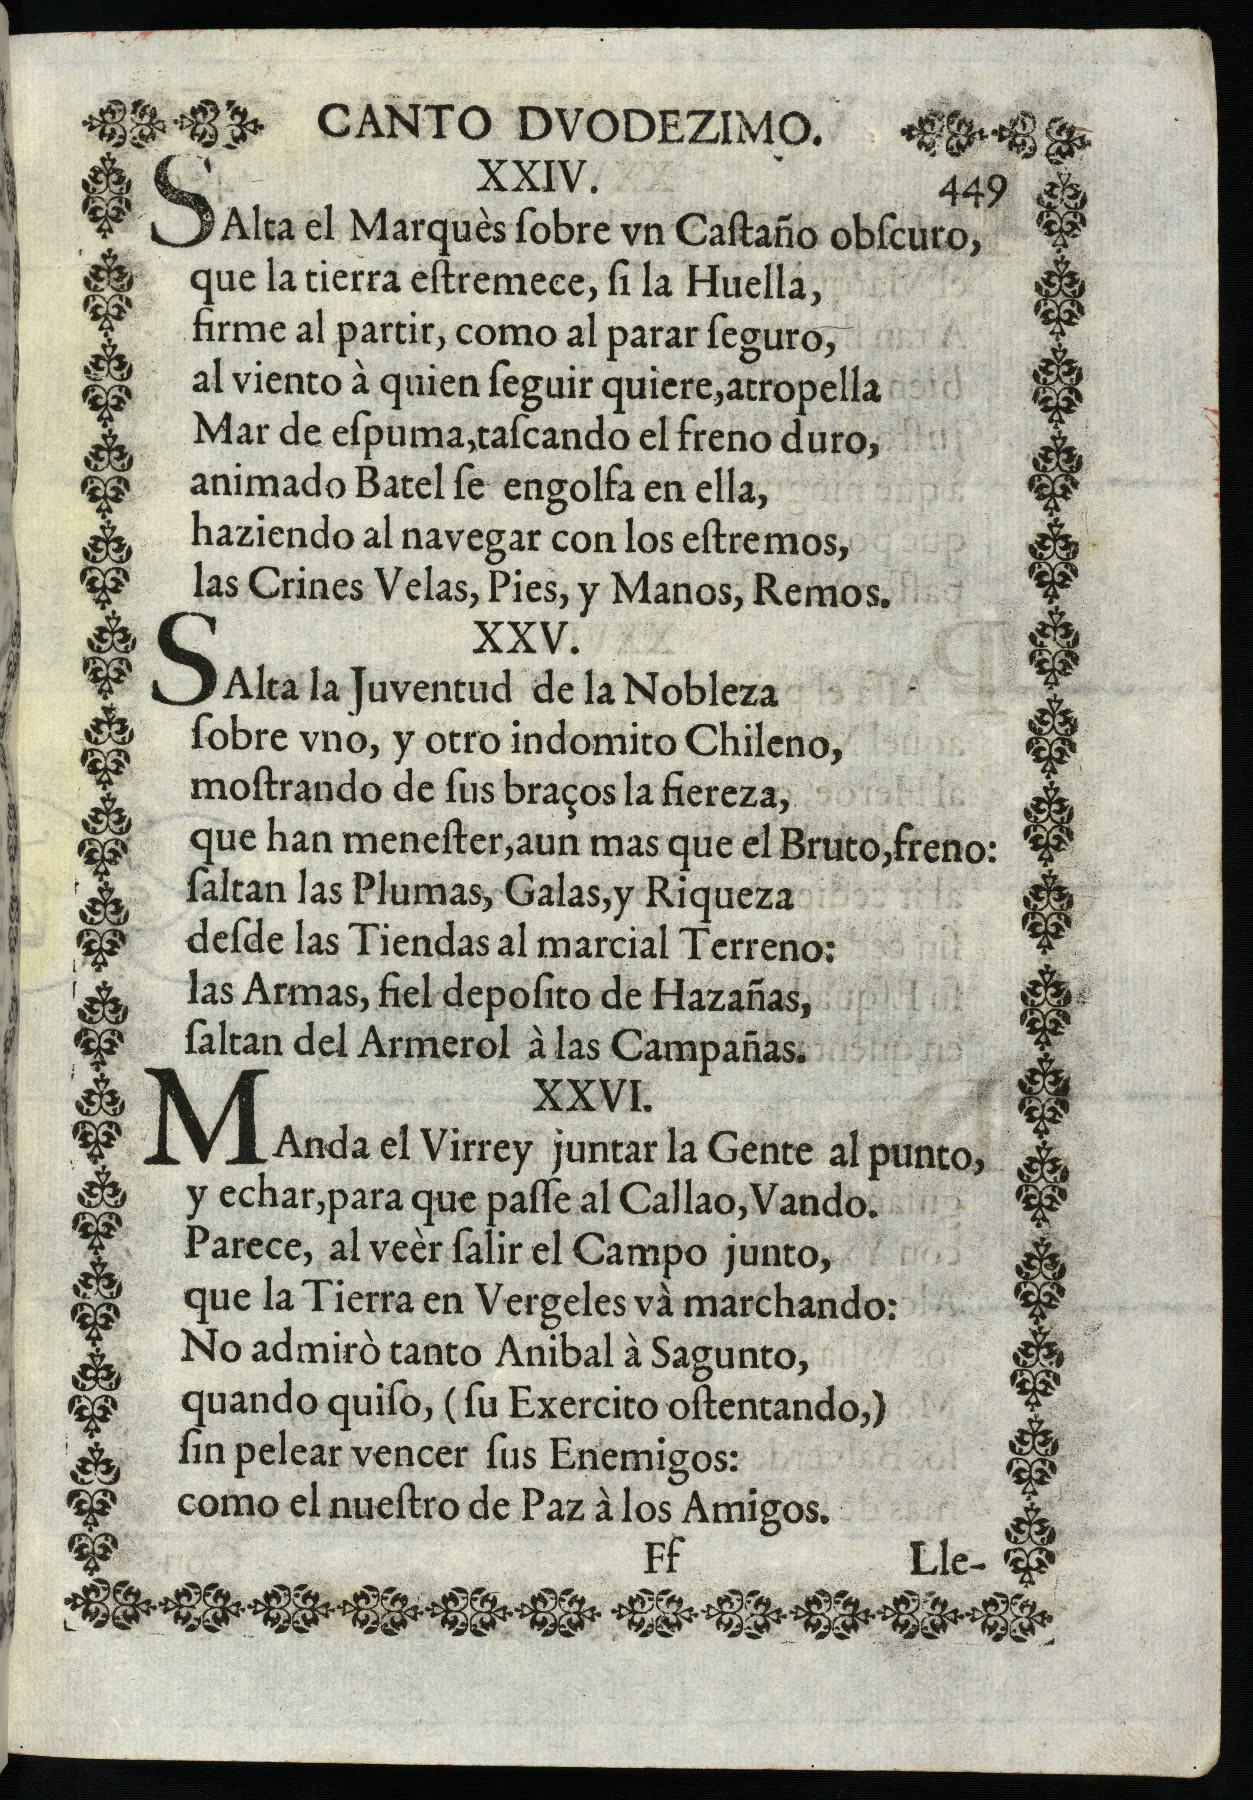 CANTO DVODEZIMO.
XXIV.
449
SAlta el Marquès ſobre vn Caſtaño obſcuro,
que la tierra eſtremece, ſi la Huella,
firme al partir, como al parar ſeguro,
al viento à quien ſeguir quiere,atropella
Mar de eſpuma,taſcando el freno duro,
animado Batel ſe engolfa en ella,
haziendo al navegar con los eſtremos,
las Crines Velas, Pies, y Manos, Remos.
XXV.
SAlta la Juventud de la Nobleza
ſobre vno, y otro indomito Chileno,
moſtrando de ſus braços la fiereza,
que han meneſter,aun mas que el Bruto,freno:
ſaltan las Plumas, Galas,y Riqueza
deſde las Tiendas al marcial Terreno:
las Armas, fiel depoſito de Hazañas,
ſaltan del Armerol à las Campañas.
XXVI.
MAnda el Virrey juntar la Gente al punto,
y echar,para que paſſe al Callao,Vando.
Parece, al veèr ſalir el Campo junto,
que la Tierra en Vergeles và marchando:
No admirò tanto Anibal à Sagunto,
quando quiſo, (ſu Exercito oſtentando,)
ſin pelear vencer ſus Enemigos:
como el nueſtro de Paz à los Amigos.
Ff
Lle-